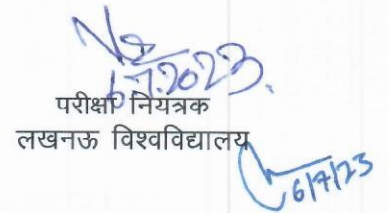 6.7.2023.
परीक्षा नियत्रक
लखनऊ विश्वविद्यालय
6/7/23